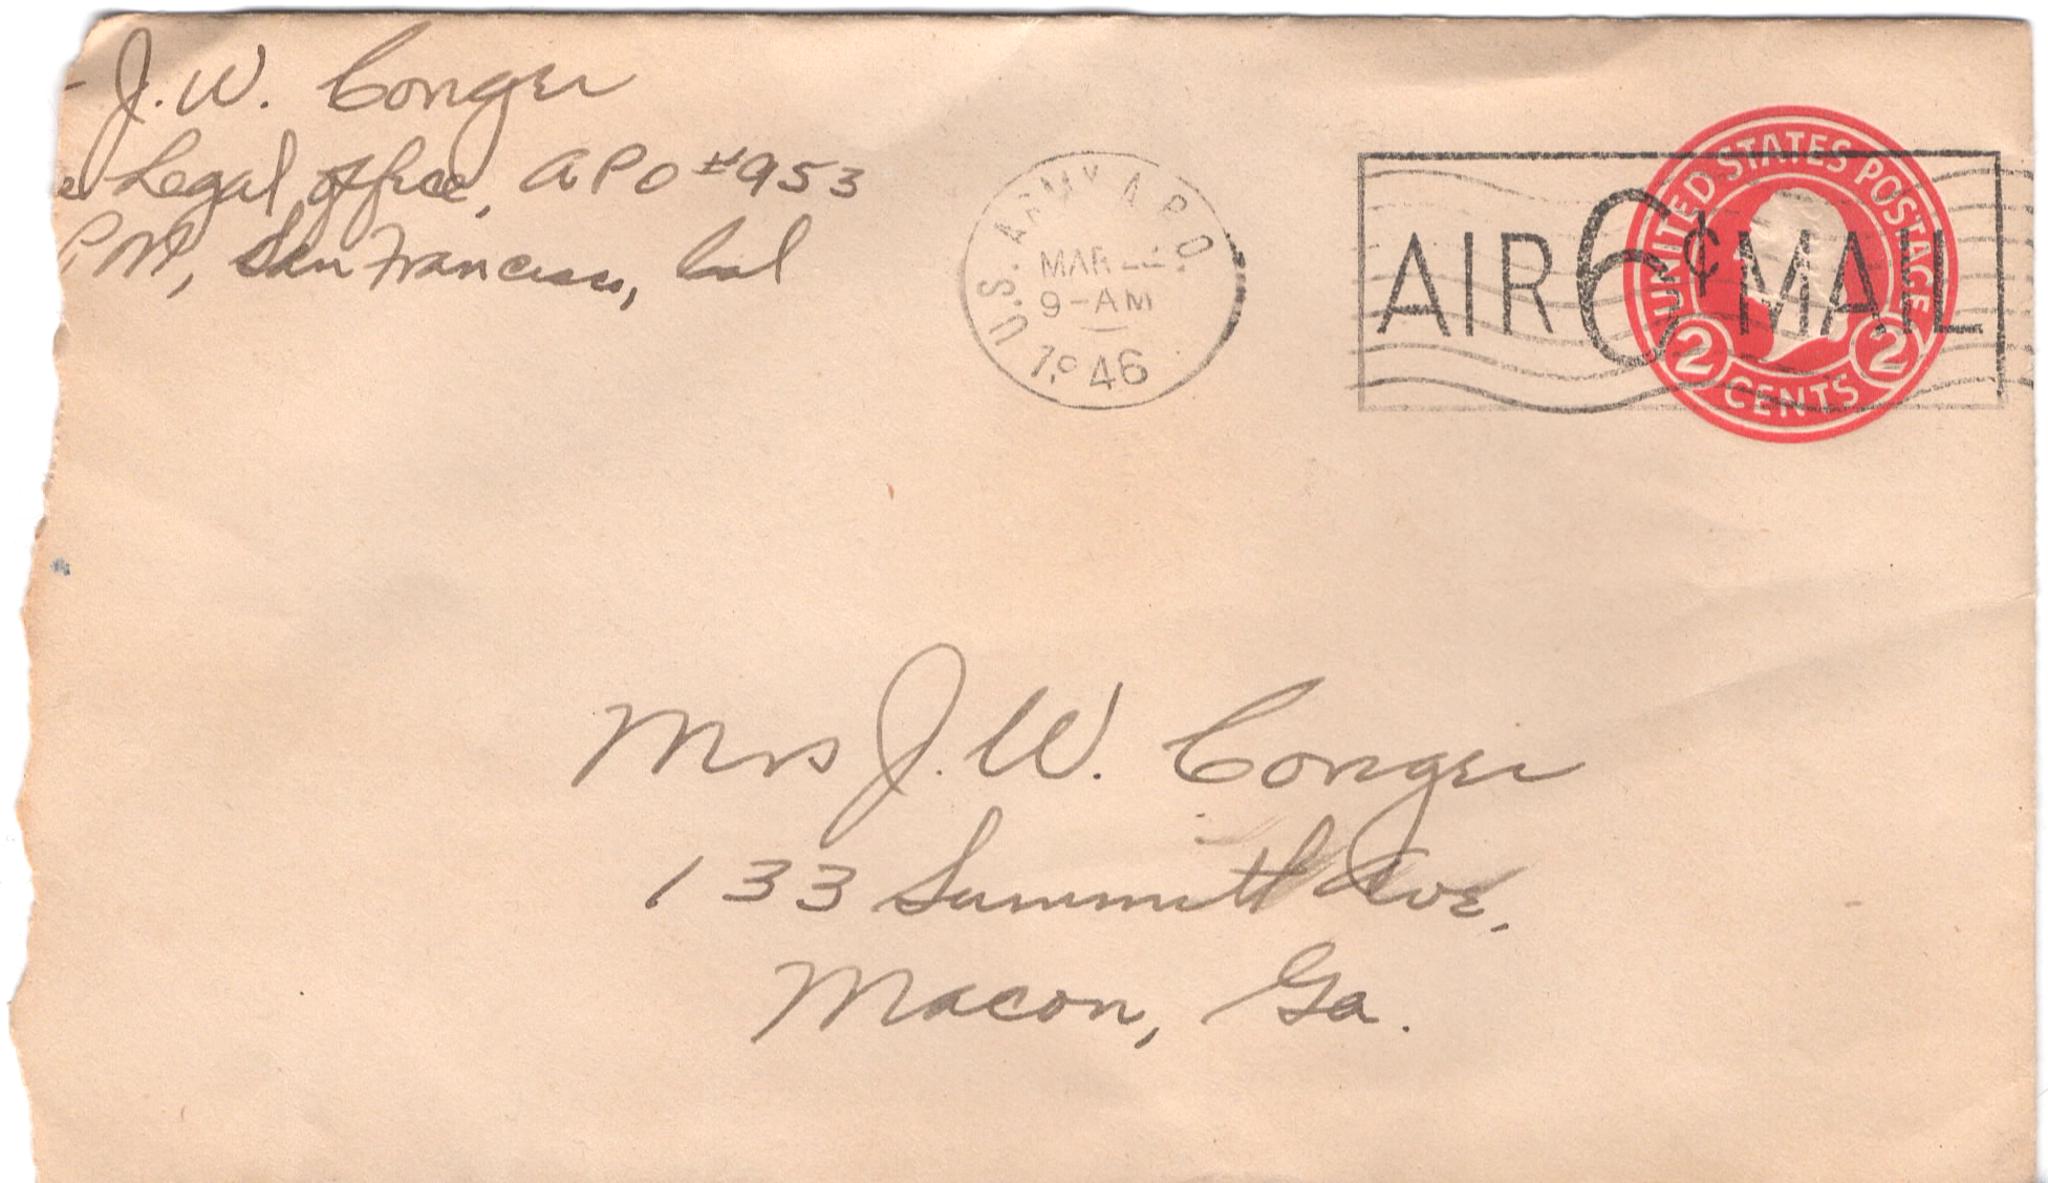 J.W. Conger
e Legal office, APO #953
P.M, San Francisco, Cal
U.S. ARMY A.P.O.
MAR 22
9-AM
1946
AIR 6¢ MAIL
UNITED STATES POSTAGE
2 CENTS 2
Mrs J.W. Conger
133 Summitt Ave,
Macon, Ga.